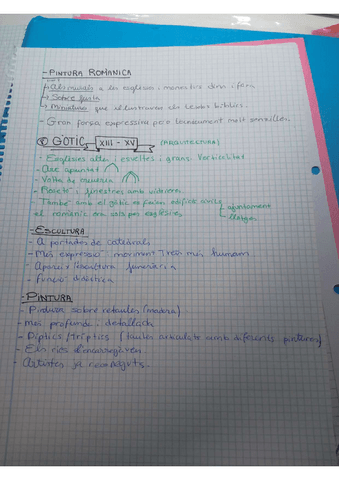 -PINTURA ROMÀNICA
→ Als murals a les esglésies, monestirs dins i fora
→ Sobre fusta
→ Miniatures que il·lustraven els textos bíblics.
- Gran força expressiva però tècnicament molt senzilles.
GÒTIC XIII - XV (ARQUITECTURA)
- Esglésies altes, esveltes i grans. Verticalitat
- Arc apuntat
- Volta de creueria
- Rosetó i finestres amb vidrieres
- També amb el gòtic es feien edificis civils → ajuntament
el romànic era sols per esglésies → llotges
-ESCULTURA
- A portades de catedrals
- Més expressió moviment Tret més humans
- Apareix escultura funerària
- Funció didàctica
-PINTURA
- Pintura sobre retaules (madera)
- més profunda i detallada
- Díptics / tríptics (taules articulats amb diferents pintures)
- Els rics d'encarregaven.
- Artistes ja reconeguts.